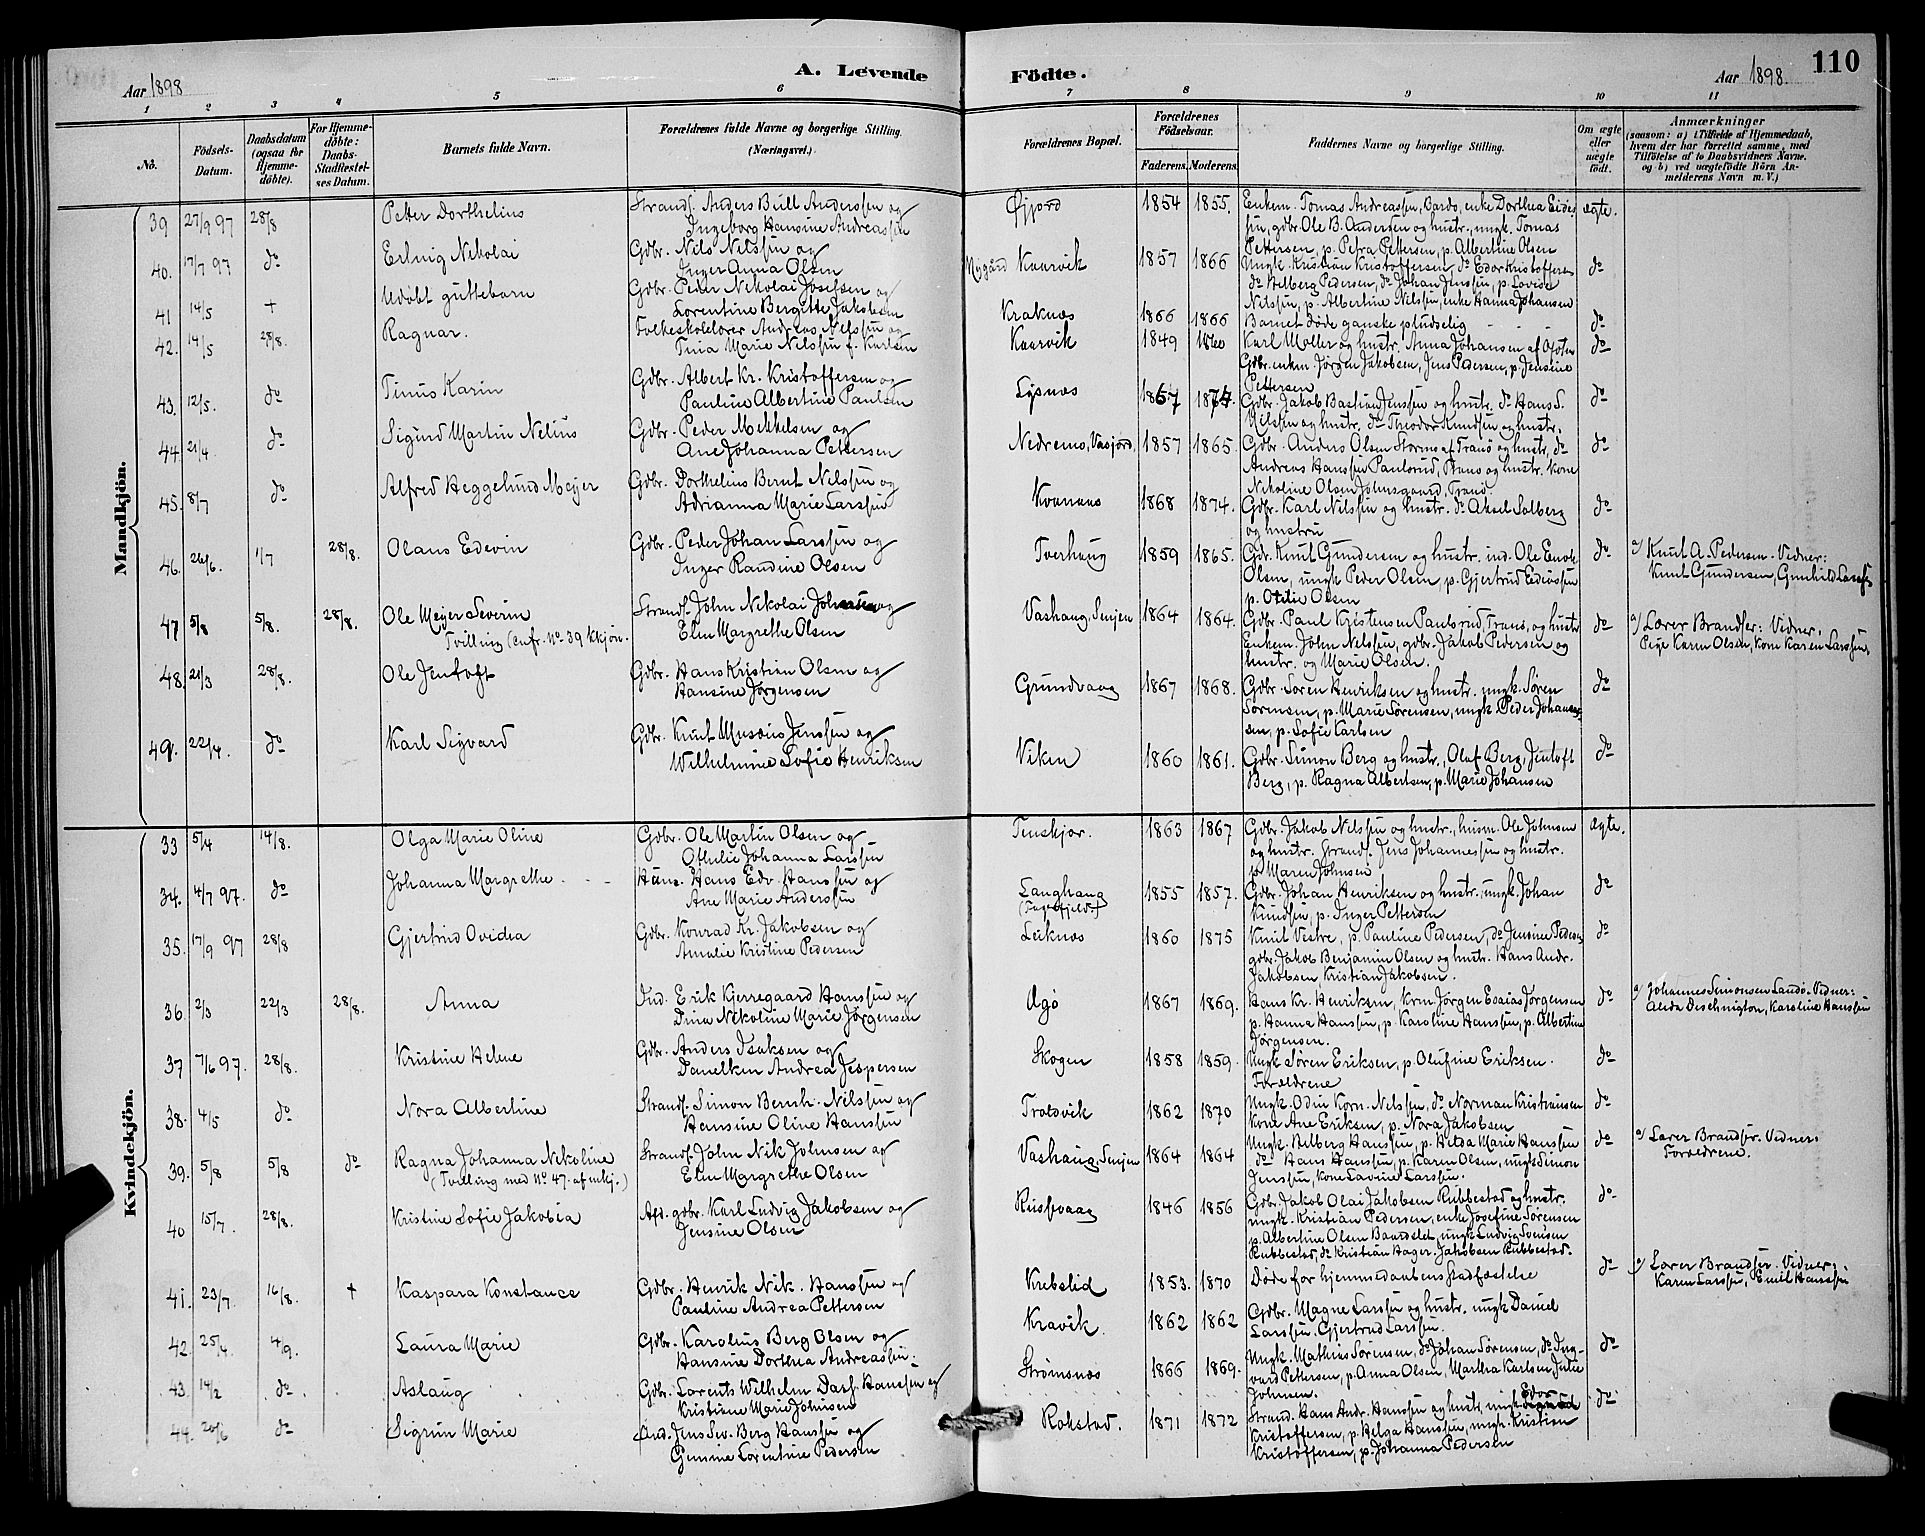 A. Levende Födte.
110
Aar 1898
Aar 1898.
1 2 3 4 5 6 7 8 9 10 11
No.
Födsels-Datum.
Daabsdatum (ogsaa for Hjemme-döbte).
For Hjemme-döbte: Daabs-Stadfæstel-ses Datum.
Barnets fulde Navn.
Forældrenes fulde Navne og borgerlige Stilling. (Næringsvei.)
Forældrenes Bopæl.
Forældrenes Födselsaar.
Faderens. Moderens.
Faddernes Navne og borgerlige Stilling.
Om ægte eller uægte födt.
Anmærkninger
(saasom: a) i Tilfælde af Hjemmedaab, hvem der har forrettet samme, med Tilföielse af to Daabsvidners Navne. og b) ved uægtefödte Börn An-melderens Navn m. V.)
Mandkjön.
39 27/9 97 28/8 Peter Dorthelius
Strands. Anders Bull Anderssen og
Ingeborg Hansine Andreassen
Øfjord 1854 1855.
Enkem. Tomas Andreassen, Bardo, enke Dorthea Eides
sen, gdbr. Ole B. Andersen og hustr., ungk. Tomas
Pettersen, p. Petra Pettersen, p. Albertine Olsen
ægte.
40. 17/7 97 do Erling Nikolai
Gdbr. Nils Nilssen og
Inger Anna Olsen
Nygård Kaarvik 1857 1866
Ungk. Kristian Kristoffersen, do Edor Kristoffersen
do Helberg Pedersen, do Johan Jenssen, p. Lovise
Nilssen, p. Albertine Nilssen, enke Hanna Johansen
do
41 14/5 + Udöbt guttebarn
Gdbr. Peder Nikolai Josefsen og
Lorentine Bergitte Jakobsen
Kraknæs 1866 1866
Barnet døde ganske pludselig
do
42. 14/5 28/8. Ragnar.
Folkeskolelærer Andreas Nilssen og
Tina Marie Nilssen f. Karlsen
Kaarvik 1849 1860
Karl Møller og hustr., Anna Johansen af Ofoten
Gdbr. enkm. Jörgen Jakobsen, Jens Pedersen, p. Jensine
Pettersen
do
43. 12/5. do Tinus Karin
Gdbr. Albert Kr. Kristoffersen og
Pauline Albertine Paulsen
Lysnæs 1867 1874.
Gdbr. Jakob Bastian Jenssen og hustr. do Hans S.
Nilsen og hustr., do Theodor Knudsen og hustr.
do
44. 21/4 do Sigurd Martin Nelius
Gdbr. Peder Mekkelsen og
Ane Johanna Pettersen
Nedremo, Vasjord 1857 1865.
Gdbr. Anders Olsen Stormo af Tranö og hustr., do
Andreas Hanssen Paulsrud, Tranö og hustr. Kone
Nikoline Olsen Johnsgaard, Tranö.
do
45. 8/7 do Alfred Heggelund Meyer
Gdbr. Dorthelius Bernt Nilssen og
Adrianna Marie Larssen
Kvannaas 1868 1874.
Gdbr. Karl Nilssen og hustr. do Aksel Solberg
og hustru
do
46. 26/6. 1/7 28/8. Olaus Edevin
Gdbr. Peder Johan Larssen og
Inger Randine Olsen
Tverhaug 1859 1865.
Gdr. Knut Gundersen og hustr. ind. Ole Enok
Olsen, ungk. Peder Olsen, p. Gjertrud Eidissen
p. Otilie Olsen
do
a) Knut A. Pedersen. Vidner:
Knut Gundersen, Gunhild Larssen
47 5/8 5/8. 28/8. Ole Meyer Severin
Tvilling (cnfr. No 39 kkjön.
Strands. John Nikolai Johnsen og
Elen Margrethe Olsen
Vashaug, Senjen 1864 1864.
Gdbr. Paul Kristensen Paulsrud, Tranö, og hustr
Enkem. John Nelssen, gdbr. Jakob Pedersen og
hustr. og Marie Olsen.
do
a) Lærer Brandser: Vidner.
Pige Karen Olsen, Kone Karen Larssen.
48. 21/3 28/8. Ole Jentoft
Gdbr. Hans Kristian Olsen og
Hansine Jørgensen
Grundvaag 1867 1868.
Gdbr. Søren Henriksen og hustr. ungk. Søren
Sørensen, p. Marie Sørensen, ungk. Peder Johannes-
sen, p. Sofie Carlsen
do
49. 22/4. do Karl Sigvard
Gdbr. Knut Musæus Jenssen og
Wilhelmine Sofie Henriksen
Viken 1860 1861.
Gdbr. Simon Berg og hustr., Olaf Berg, Jentoft
Berg, p. Ragna Albertsen, p. Marie Johansen
do
Kvindekjön.
33 5/4 14/8. Olga Marie Oline
Gdbr. Ole Martin Olsen og
Othilie Johanna Larssen
Tenskjær. 1863 1867
Gdbr. Jakob Nelssen og hustr., husm. Ole Johnsen
og hustr. Strands. Jens Johannessen og hustr.
p. Maren Johnsen
ægte.
34. 4/7 97. do Johanna Margrethe
Husm. Hans Edv. Hanssen og
Ane Marie Anderssen
Langhaug
(Fagerfjeld.) 1855 1857.
Gdbr. Johan Henriksen og hustr. ungk. Johan
Knudsen, p. Inger Pettersen
do
35. 17/9 97 28/8 Gjertrud Ovidea
Gdbr. Konrad Kr. Jakobsen og
Amalie Kristine Pedersen
Leiknes 1860 1875
Knut Vestre, p. Pauline Pedersen, do Jensine Pedersen
gdbr. Jakob Benjamin Olsen og hustr. Hans Andr.
Jakobsen, Kristian Jakobsen.
do
36. 2/3 22/3 28/8. Anna
Ind. Erik Kjerregaard Hanssen og
Dina Nikoline Marie Jörgensen
Agö 1867 1869.
Hans Kr. Henriksen, Krm. Jörgen Esaias Jørgensen
p. Hanna Hanssen, p. Karoline Hanssen, p. Albertine
Jørgensen.
do
a) Johannes Simonsen Sandö. Vidner:
Alida Deschnigton, Karoline Hanssen
37 7/6 97. 28/8. Kristine Helene
Gdbr. Anders Isaksen og
Danelken Andrea Jespersen
Skogen 1858 1859.
Ungk. Søren Eriksen, p. Olufine Eriksen.
Forældrene
do
38. 4/5 do Nora Albertine
Strands. Simon Bernh. Nilssen og
Hansine Oline Hanssen
Trolsvik 1862 1870
Ungk. Odin Korn. Nelssen, do Norman Kristiansen
Kone Ane Eriksen, p. Nora Jakobsen
do
39. 5/8 5/8 do Ragna Johanna Nikoline
(Tvilling med No 47. af mkj.)
Strands. John Nik. Johnsen og
Elen Margrethe Olsen
Vashaug, Senjen 1864 1864
Ungk. Helberg Hanssen, p. Helda Marie Hanssen
do Hans Hanssen, p. Karen Olsen, ungk. Simon
Jenssen, Kone Lavine Larssen.
do
a) Lærer Brandser. Vidner:
Forældrene.
40 15/7. 28/8. Kristine Sofie Jakobia
Afd. gdbr. Karl Ludvig Jakobsen og
Jensine Olsen
Russevaag 1846 1856
Gdbr. Jakob Olai Jakobsen Rubbestad og hustr.
ungk. Kristian Pedersen, enke Josefine Sørensen
p. Albertine Olsen Baardslet, ungk. Ludvig Svensen
Rubbestad, do Kristian Hager. Jakobsen Rubbestad.
do
41. 23/7. 16/8. + Kaspara Konstance
Gdbr. Henrik Nik. Hanssen og
Pauline Andrea Pettersen
Krebslid 1853. 1870
Døde før hjemmedaabens stadfæstelse
do
a) Lærer Brandser. Vidner:
Karen Larssen, Emil Hanssen
42. 25/4. 4/9. Laura Marie
Gdbr. Karolius Berg Olsen og
Hansine Dorthea Andreassen.
Kravik. 1862 1862
Gdbr. Magne Larssen og hustr. ungk. Daniel
Larssen. Gjertrud Larssen.
do
43. 14/2 do Aslaug
Gdbr. Lorents Wilhelm Darf. Hanssen og
Kristine Marie Johnsen
Strømsnæs 1866 1869.
Ungk. Mathias Sørensen, do Johan Sørensen, do Ing-
vard Pettersen, p. Anna Olsen, Martha Karlsen, Julie
Johnsen.
44. 20/6 do Sigrun Marie
Ind. Jens Sev. Berg Hanssen og
Gunine Lorentine Pedersen
Rokstad. 1871 1872
Strand. Hans Andr. Hanssen og hustr., ungk. Edor
Kristoffersen, p. Helga Hanssen, ungk. Kristian
Kristoffersen, p. Johanna Pedersen
do